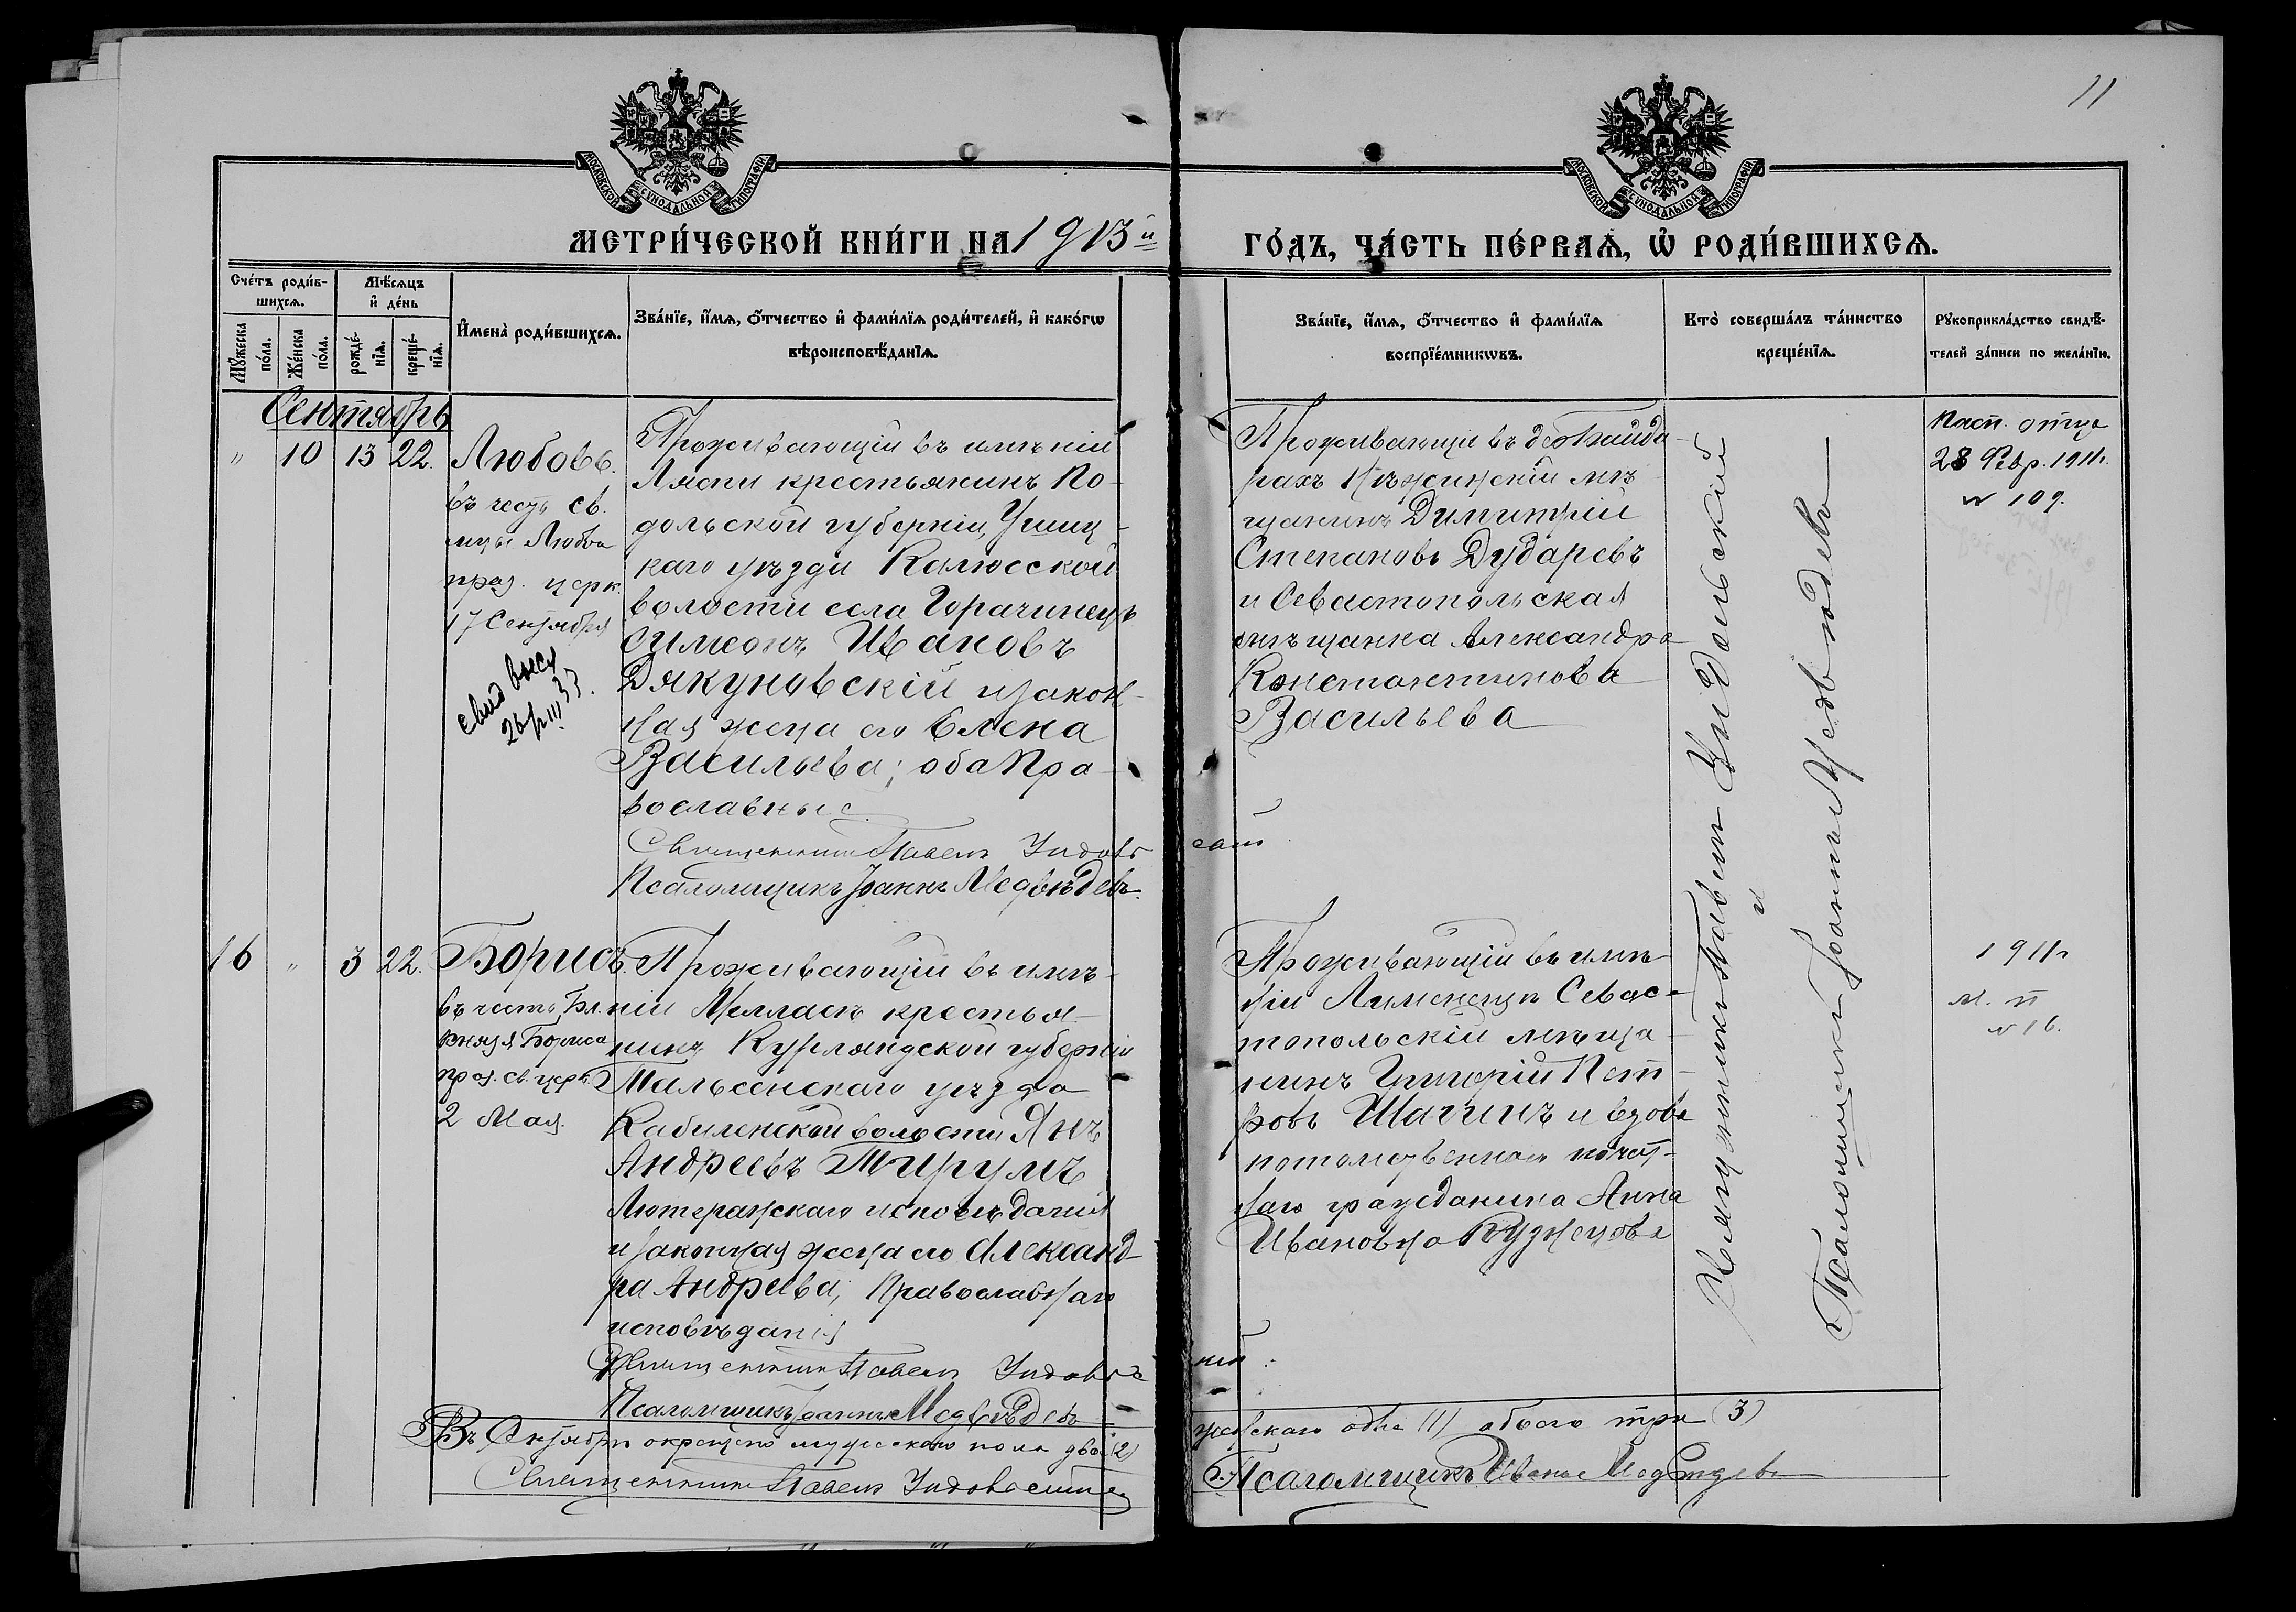 11
МОСКОВСКОЙ СѴНОДАЛЬНОЙ ТИПОГРАФІИ
МОСКОВСКОЙ СѴНОДАЛЬНОЙ ТИПОГРАФІИ
МЕТРИ́ЧЕСКОЙ КНИ́ГИ НА 1913й
ГО́ДЪ, ЧА́СТЬ ПЕ́РВАѦ, Ѡ РОДИ́ВШИХСѦ.
Сче́тъ роди́в-
шихсѧ.
Мꙋжеска
по́ла.
Же́нска
по́ла.
Мѣ́сѧцъ
и҆ де́нь
рожде́-
нїѧ.
креще́-
нїѧ.
И҆мена̀ роди́вшихсѧ.
Зва́нїе, и҆́мѧ, ѻ҆́тчество и҆ фами́лїѧ роди́телей, и҆ како́гѡ
вѣроисповѣ́данїѧ.
Зва́нїе, и҆́мѧ, ѻ҆́тчество и҆ фами́лїѧ
воспрїе́мникѡвъ.
Кто̀ соверша́лъ та́инство
креще́нїѧ.
Рꙋкоприкла́дство свидѣ́-
телей за́писи по жела́нїю.
Сентябрь
" 10 13 22.
Любовь.
въ честь св.
мцы Любви
праз. церк.
17 Сентября
свид высл
26/III 33.
Проживающій въ имѣніи
Ляспи крестьянинъ По-
дольской губерніи, Ушиц-
каго уѣзда Калюсской
волости села Горачинецъ
Симеонъ Ивановъ
Дякуновскій и закон-
ная жена его Елена
Васильева; оба Пра-
вославные
Священникъ Павелъ Индовс
Псаломщикъ Іоаннъ Медвѣдевъ.
Проживающіе въ дер Байда-
рахъ Нѣжинскій мѣ-
щанинъ Димитрій
Степановъ Дударевъ
и Севастопольская
мѣщанка Александра
Константинова
Васильева
Священникъ Павелъ
и
Псаломщикъ Іоаннъ Медвѣдевъ
Пасп. отца
28 Февр. 1911г.
№ 109.
16 " 3 22.
Борисъ.
въ честь Бл.
князя Бориса
праз. св. церк.
2 Мая.
Проживающій въ имѣ-
ніи Мелласъ крестья-
нинъ Курляндской губерніи
Тальсенскаго уѣзда
Кабиленской волости Янъ
Андреевъ Тирумъ
Лютеранскаго исповѣданія
и законная жена его Александ-
ра Андреева, Православнаго
исповѣданія
Священникъ Павелъ Индовс
Псаломщикъ Іоаннъ Медвѣдевъ
Проживающій въ имѣ-
ніи Севас-
топольскій мѣща-
нинъ Григорій Пет-
ровъ Шагинъ и вдова
потомственнаго почет-
наго гражданина Анна
Ивановна Кузнецова
1911г
м. п
№ 16.
Въ Сентябрѣ окрещено мужескаго пола два (2)
женскаго одна (1) обоего три (3)
Священникъ Павелъ
Псаломщикъ Иванъ Медвѣдевъ